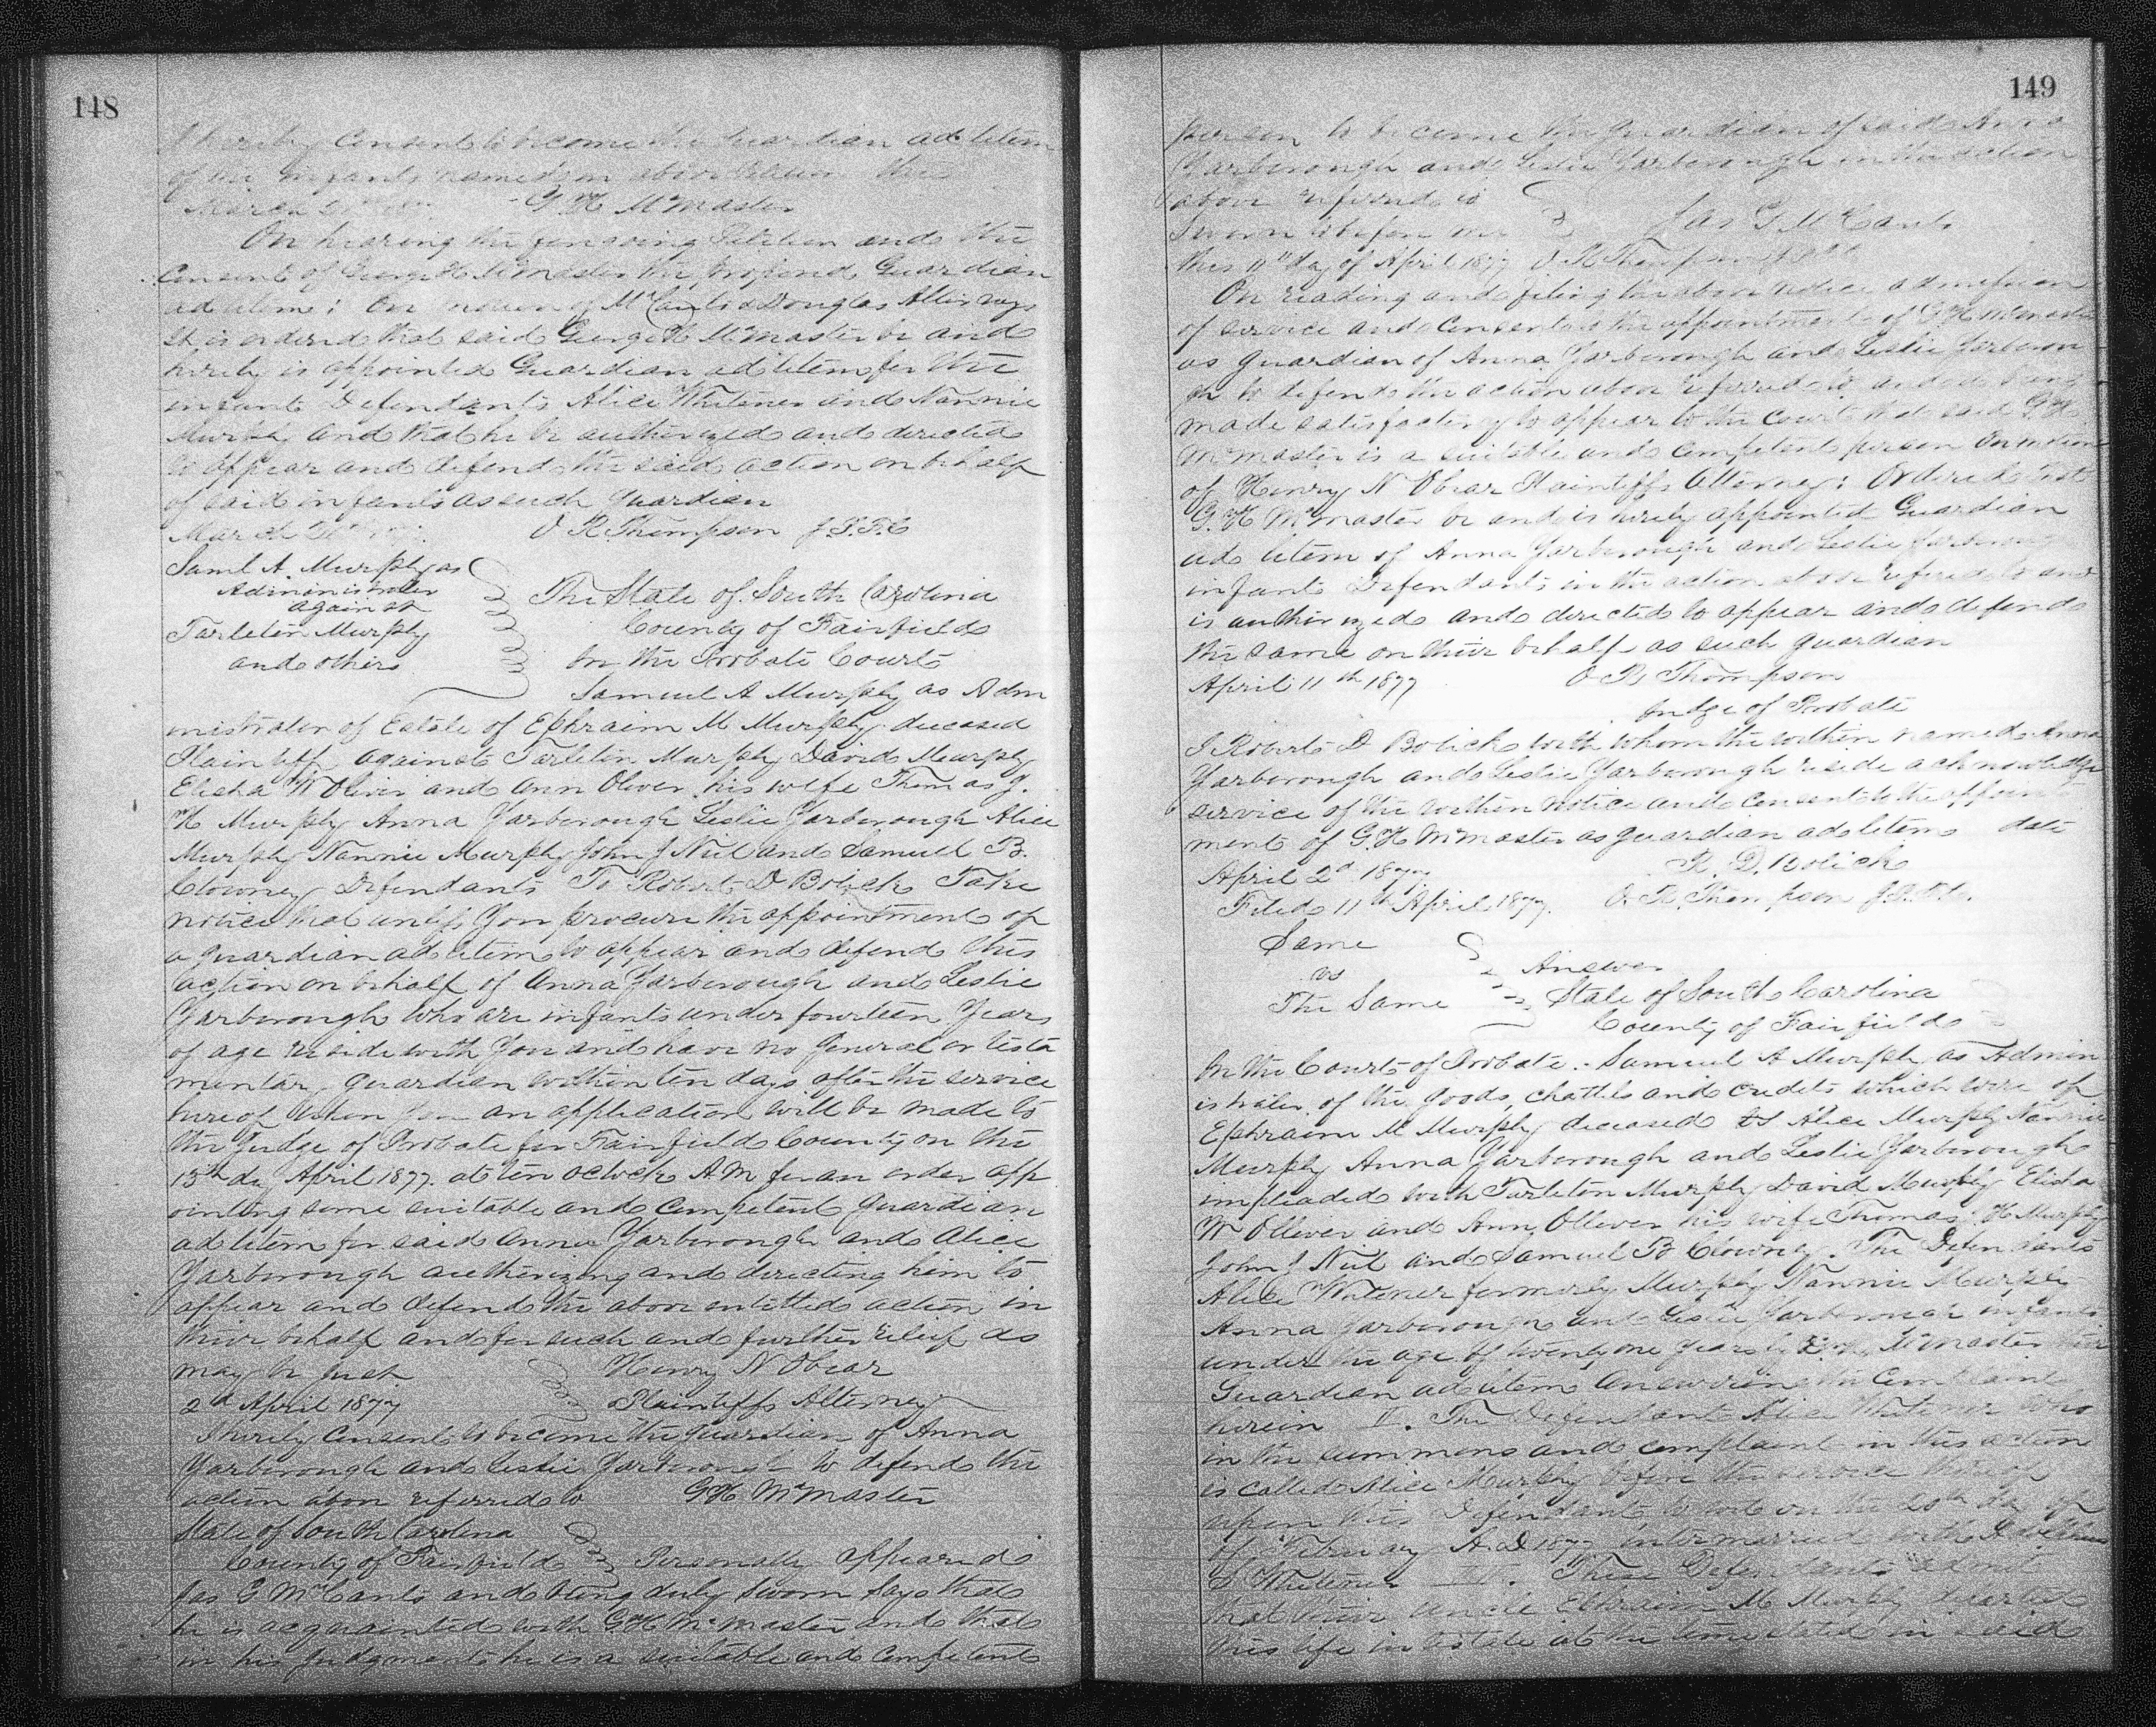 148
I hereby Consent to become the Guardian ad litem
of the infants named in above Petition this
March G H McMaster
On hearing the foregoing Petition and the
Consent of George H McMaster the proposed Guardian
ad litem: On motion of McCants & Douglas Attorneys
It is ordered that said George H McMaster be and
hereby is appointed Guardian ad litem for the
infant Defendants Alice Whitener and Nannie
Murphy and that he be authorized and directed
to appear and defend the said action on behalf
of said infants as such guardian
March O R Thompson J.P.F.C
Saml A. Murphy as
Administrator
against
Tarleton Murphy
and others
The State of South Carolina
County of Fairfield
In the Probate Court
Samuel A Murphy as Adm
inistrator of Estate of Ephraim M Murphy deceased
Plaintiff against Tarleton Murphy David Murphy
Elisha W Oliver and Ann Oliver his wife Thomas J.
H Murphy Anna Yarborough Leslie Yarborough Alice
Murphy Nannie Murphy John J Neil and Samuel B.
Clowney Defendants To Robert D Bolick Take
notice that unless You procure the appointment of
a guardian ad litem to appear and defend this
action on behalf of Anna Yarborough and Leslie
Yarborough who are infants under fourteen Years
of age reside with You and have no general or testa
mentary guardian within ten days after the service
hereof Upon You an application will be made to
the Judge of Probate for Fairfield County on the
13th day April 1877. at ten oclock A M for an order app
ointing some suitable and Competent guardian
ad litem for said Anna Yarborough and Alice
Yarborough authorizing and directing him to
appear and defend the above entitled action in
their behalf and for such and further relief as
may be just Henry N Obear
2d April 1877 Plaintiffs Attorney
I hereby Consent to become the guardian of Anna
Yarborough and Leslie Yarborough to defend the
action above referred to G H McMaster
State of South Carolina
County of Fairfield Personally appeared
Jas G McCants and being duly sworn says that
he is acquainted with G H McMaster and that
in his judgment he is a suitable and Competent
149
person to become the guardian of said Anna
Yarborough and Leslie Yarborough in the action
above referred to
Sworn to before me Jas G McCants
this 11th day of April 1877 O R Thompson
On reading and filing the above notice admission
of service and Consent to the appointment of G H McMaster
as guardian of Anna Yarborough and Leslie Yarborou
gh to defend the action above referred to and it being
made satisfactory to appear to the Court that said G H
McMaster is a suitable and Competent person On motion
of Henry N Obear Plaintiffs Attorney: Ordered that
G. H McMaster be and is hereby appointed Guardian
ad litem of Anna Yarborough and Leslie Yarborough
infant Defendants in the action above refered to and
is authorized and directed to appear and defend
the same on their behalf as such guardian
April 11th 1877 O R Thompson
Judge of Probate
I Robert D Bolick with whom the within named Anna
Yarborough and Leslie Yarborough reside acknowledge
service of the within notice and Consent to the appoint
ment of G. H McMaster as guardian ad litem date
April 2d 1877 R. D. Bolick
Filed 11th April 1877. O. R. Thompson J.P.F.C.
Same
vs
The Same
Answer
State of South Carolina
County of Fairfield
In the Court of Probate. - Samuel A Murphy as Admin
istrator of the goods, chattels and credits which were of
Ephraim M Murphy deceased vs Alice Murphy Nannie
Murphy Anna Yarborough and Leslie Yarborough
impleaded with Tarleton Murphy David Murphy Elisha
W Olliver and Ann Olliver his wife Thomas H Murphy
John J Neil and Samuel B Clowney. The Defendants
Alice Whitener formerly Murphy Nannie Murphy
Anna Yarborough and Leslie Yarborough infants
under the age of twenty one years by McMaster their
Guardian ad litem Answering the Complaint
herein II. The Defendant Alice Whitener who
in the summons and complaint in this action
is called Alice Murphy before the service thereof
upon this Defendant to wit on the 20th day of
of February A D 1877 intermarried with
S Whitener III. These Defendants admit
that their uncle Ephraim M Murphy departed
this life intestate at the time stated in said